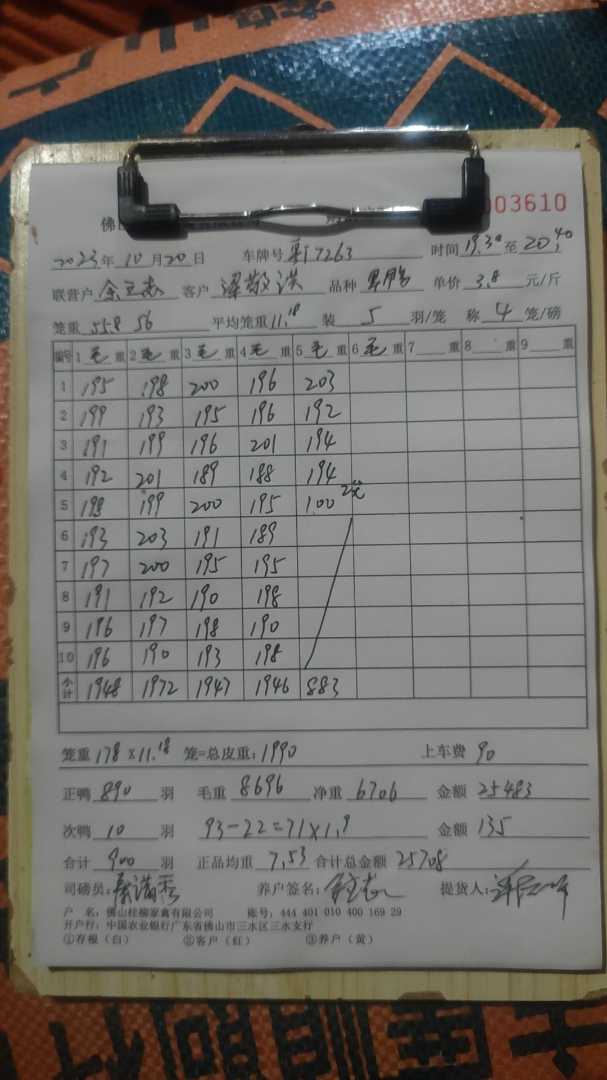 佛
003610
2023年10月20日 车牌号 7263 时间19.30至20.40
联营户 余 客户 梁敬洪 品种 单价3.8元/斤
笼重 558 56 平均笼重11.18 装5羽/笼 称4笼/磅
编号 1毛重 2毛重 3毛重 4毛重 5毛重 6毛重 7重 8重 9重
1 195 198 200 196 203
2 199 193 195 196 192
3 191 199 196 201 194
4 192 201 189 188 194
5 198 199 200 195 100
6 193 203 191 189
7 197 200 195 195
8 191 192 190 198
9 196 197 198 190
10 196 190 193 198
小计 1948 1972 1947 1946 883
笼重178×11.18 笼=总皮重:1990 上车费 90
正鸭890羽 毛重8696 净重6706 金额25483
次鸭10羽 93-22=71×1.9 金额135
合计900羽 正品均重7.53 合计总金额25708
司磅员: 养户签名: 提货人:
户 名:佛山桂柳家禽有限公司 账号:444 401 010 400 169 29
开户行:中国农业银行广东省佛山市三水区三水支行
①存根(白) ②客户(红) ③养户(黄)